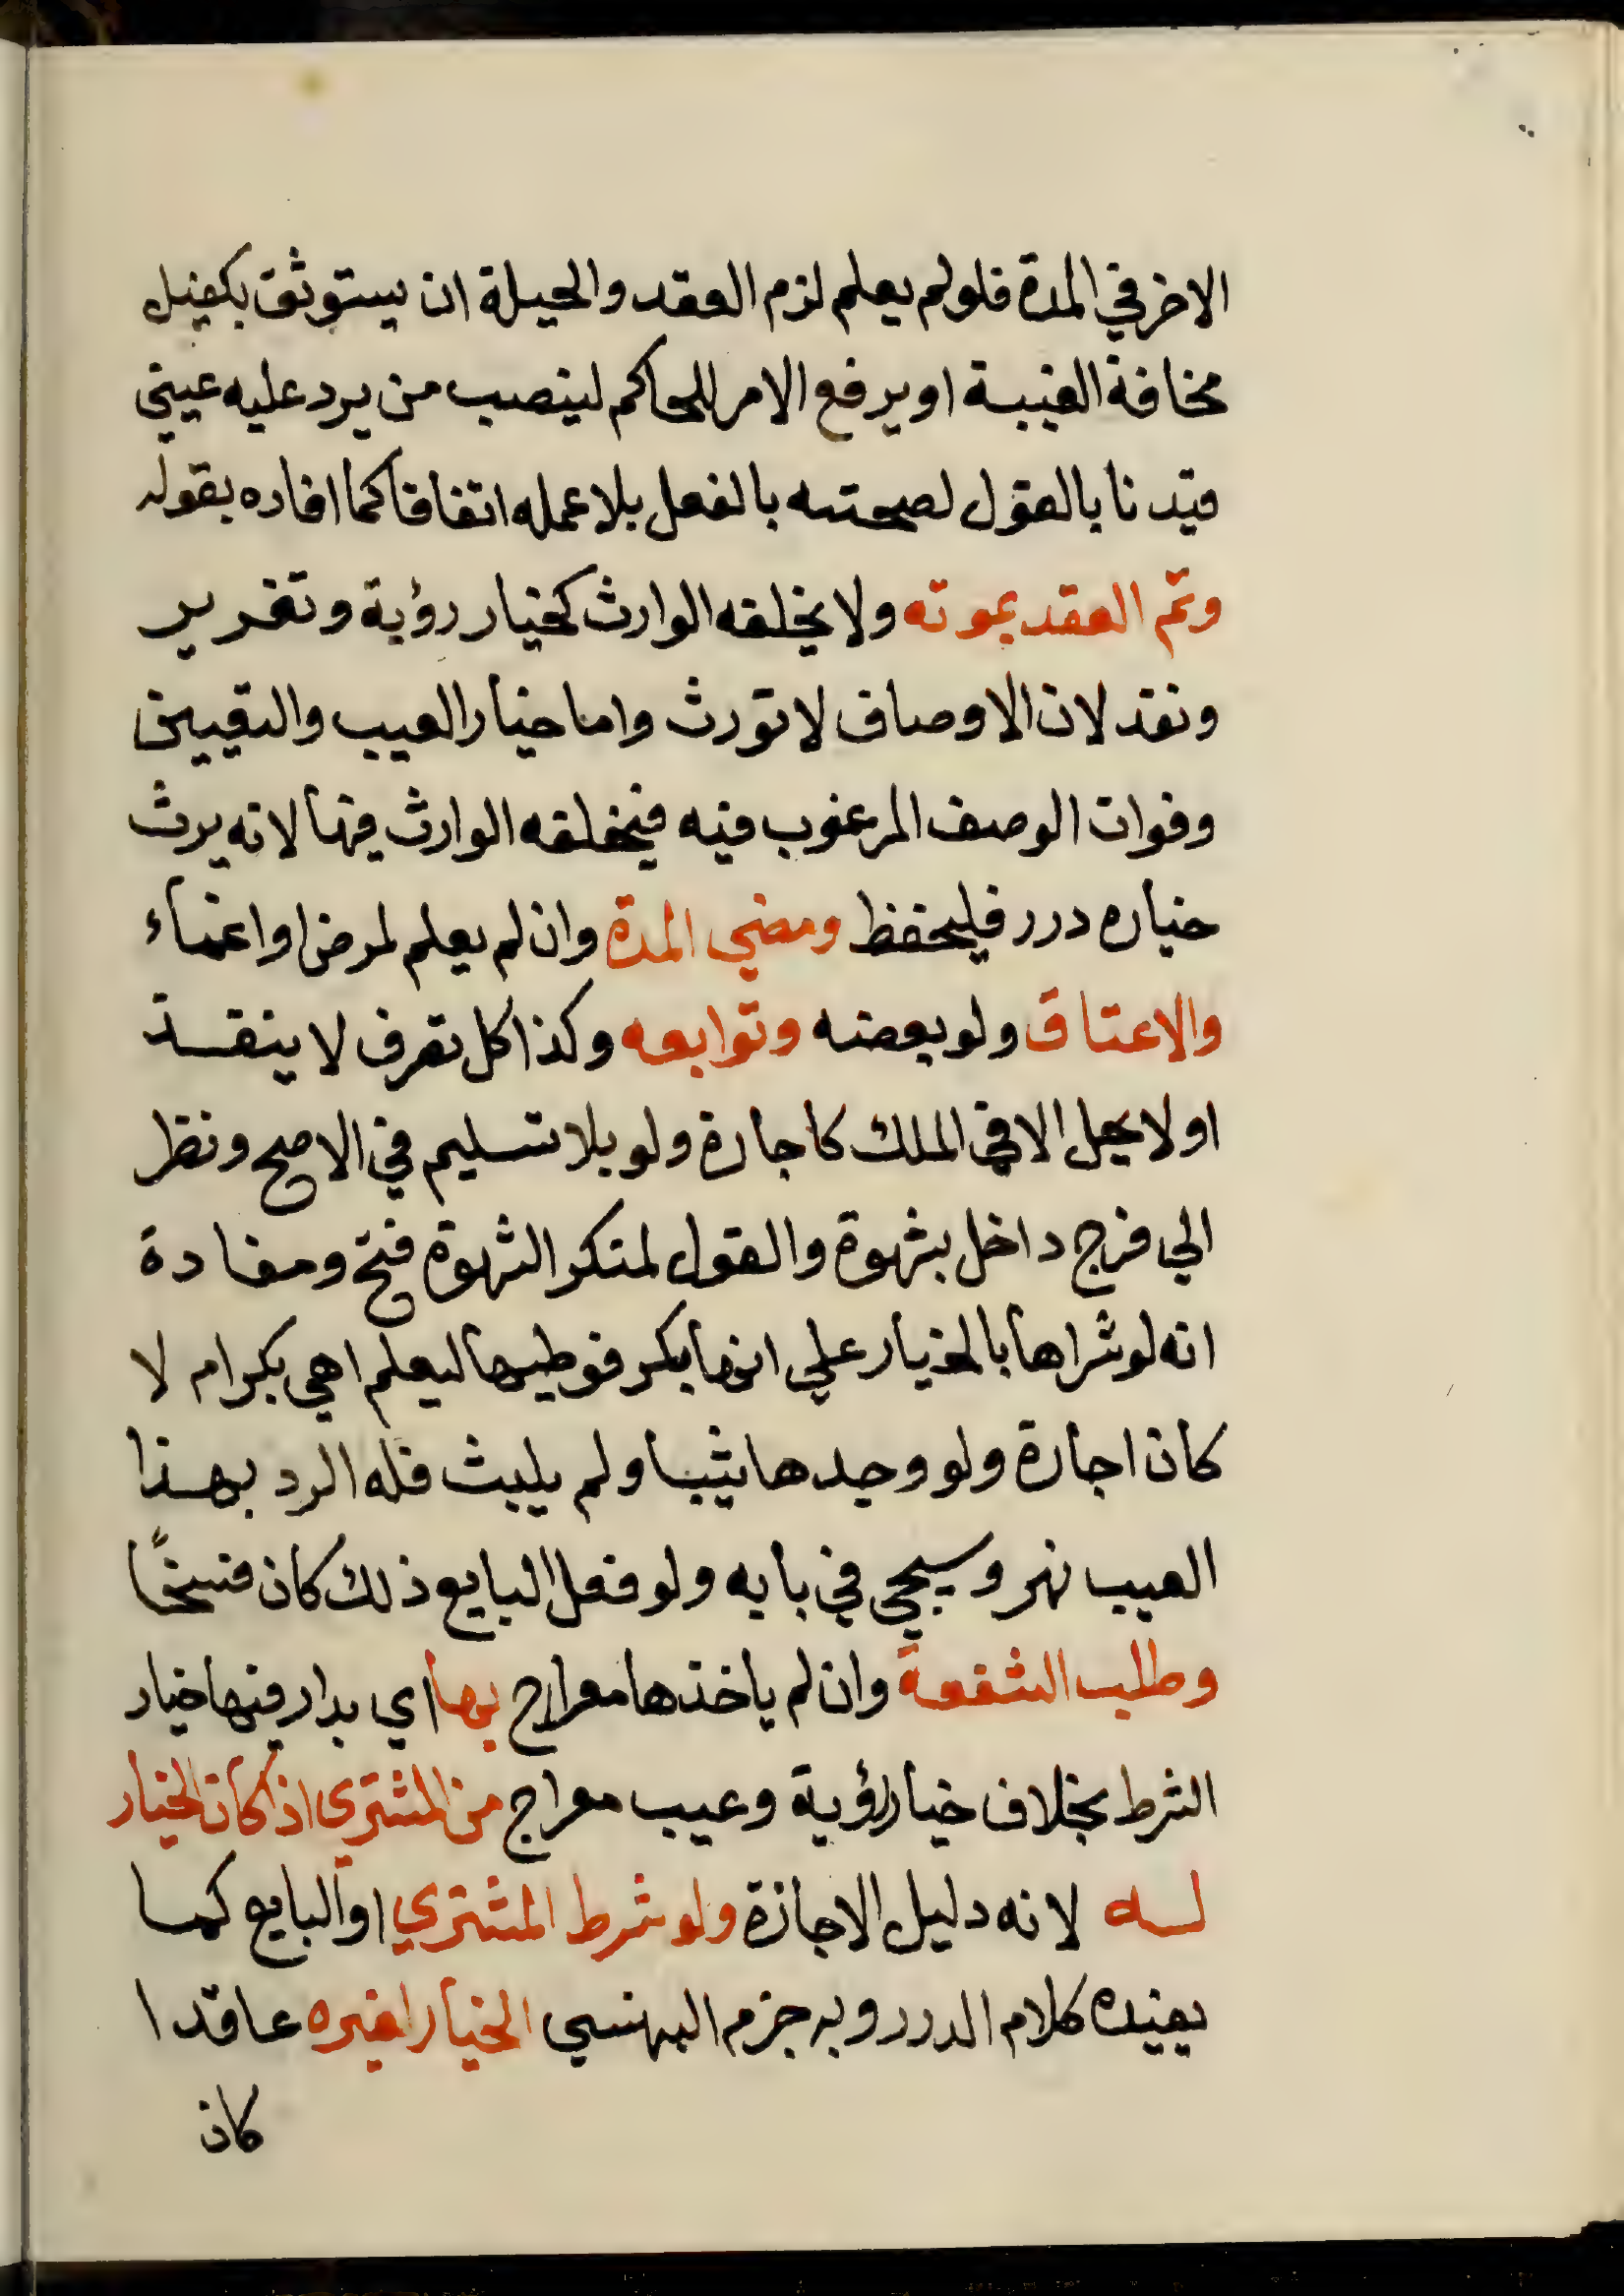 الاخر في المدة فلو لم يعلم لزم العقد والحيلة ان يستوثق بكفيل
مخافة الغيبة او يرفع الامر للحاكم لينصب من يرد عليه عيني
قيدنا بالقول لصحته بالفعل بلا عمله اتفاقا كما افاده بقوله
وتم العقد بموته ولا يخلفه الوارث كخيار رؤية وتغرير
ونقد لان الاوصاف لا تورث واما خيار العيب والتعيين
وفوات الوصف المرغوب فيه فيخلفه الوارث فيها لانه يرث
خياره درر فليحفظ ومضي المدة وان لم يعلم لمرض او اغماء
والاعتاق ولو بعضه وتوابعه وكذا كل تصرف لا ينفذ
او لا يحل الا في الملك كاجارة ولو بلا تسليم في الاصح ونظر
الي فرج داخل بشهوة والقول لمنكر الشهوة فتح ومفادة
انه لو شراها بالخيار علي انها بكر فوطيها ليعلم اهي بكر ام لا
كان اجارة ولو وجدها ثيبا ولم يلبث فله الرد بهذا
العيب نهر وسيجي في بابه ولو فعل البايع ذلك كان فسخًا
وطلب الشفعة وان لم ياخذها معراج بها اي بدار فيها خيار
الشرط بخلاف خيار رؤية وعيب معراج من المشتري اذا كان الخيار
له لانه دليل الاجازة ولو شرط المشتري او البايع كما
يفيده كلام الدرر وبه جزم البهنسي الخيار لغيره عاقدا
كان